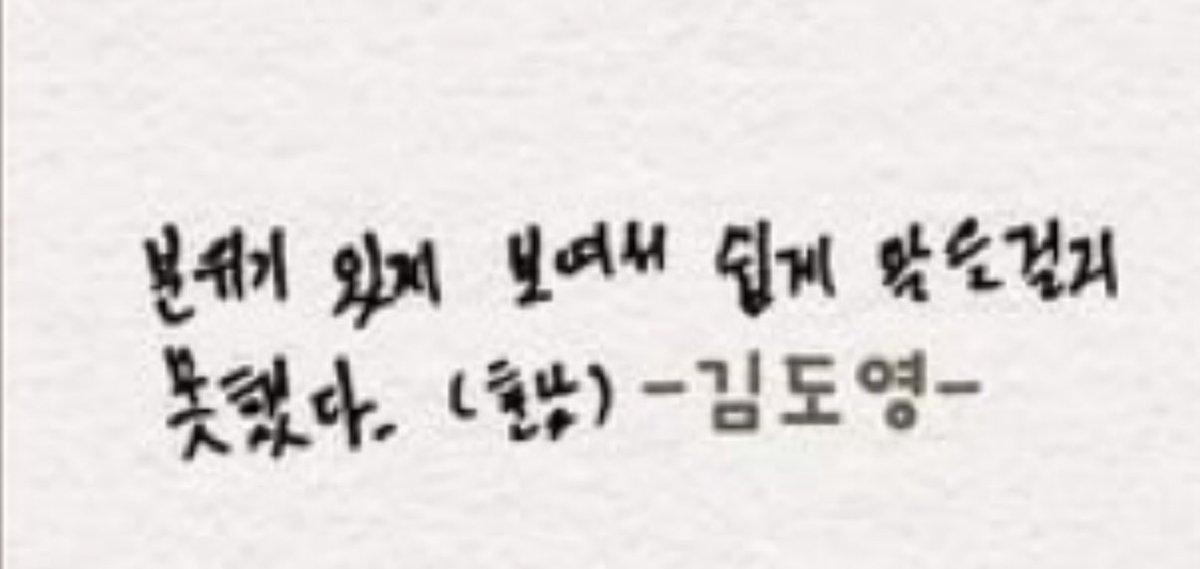 분위기 있게 보여서 쉽게 말은걸지
못했다. (훈남) -김도영-